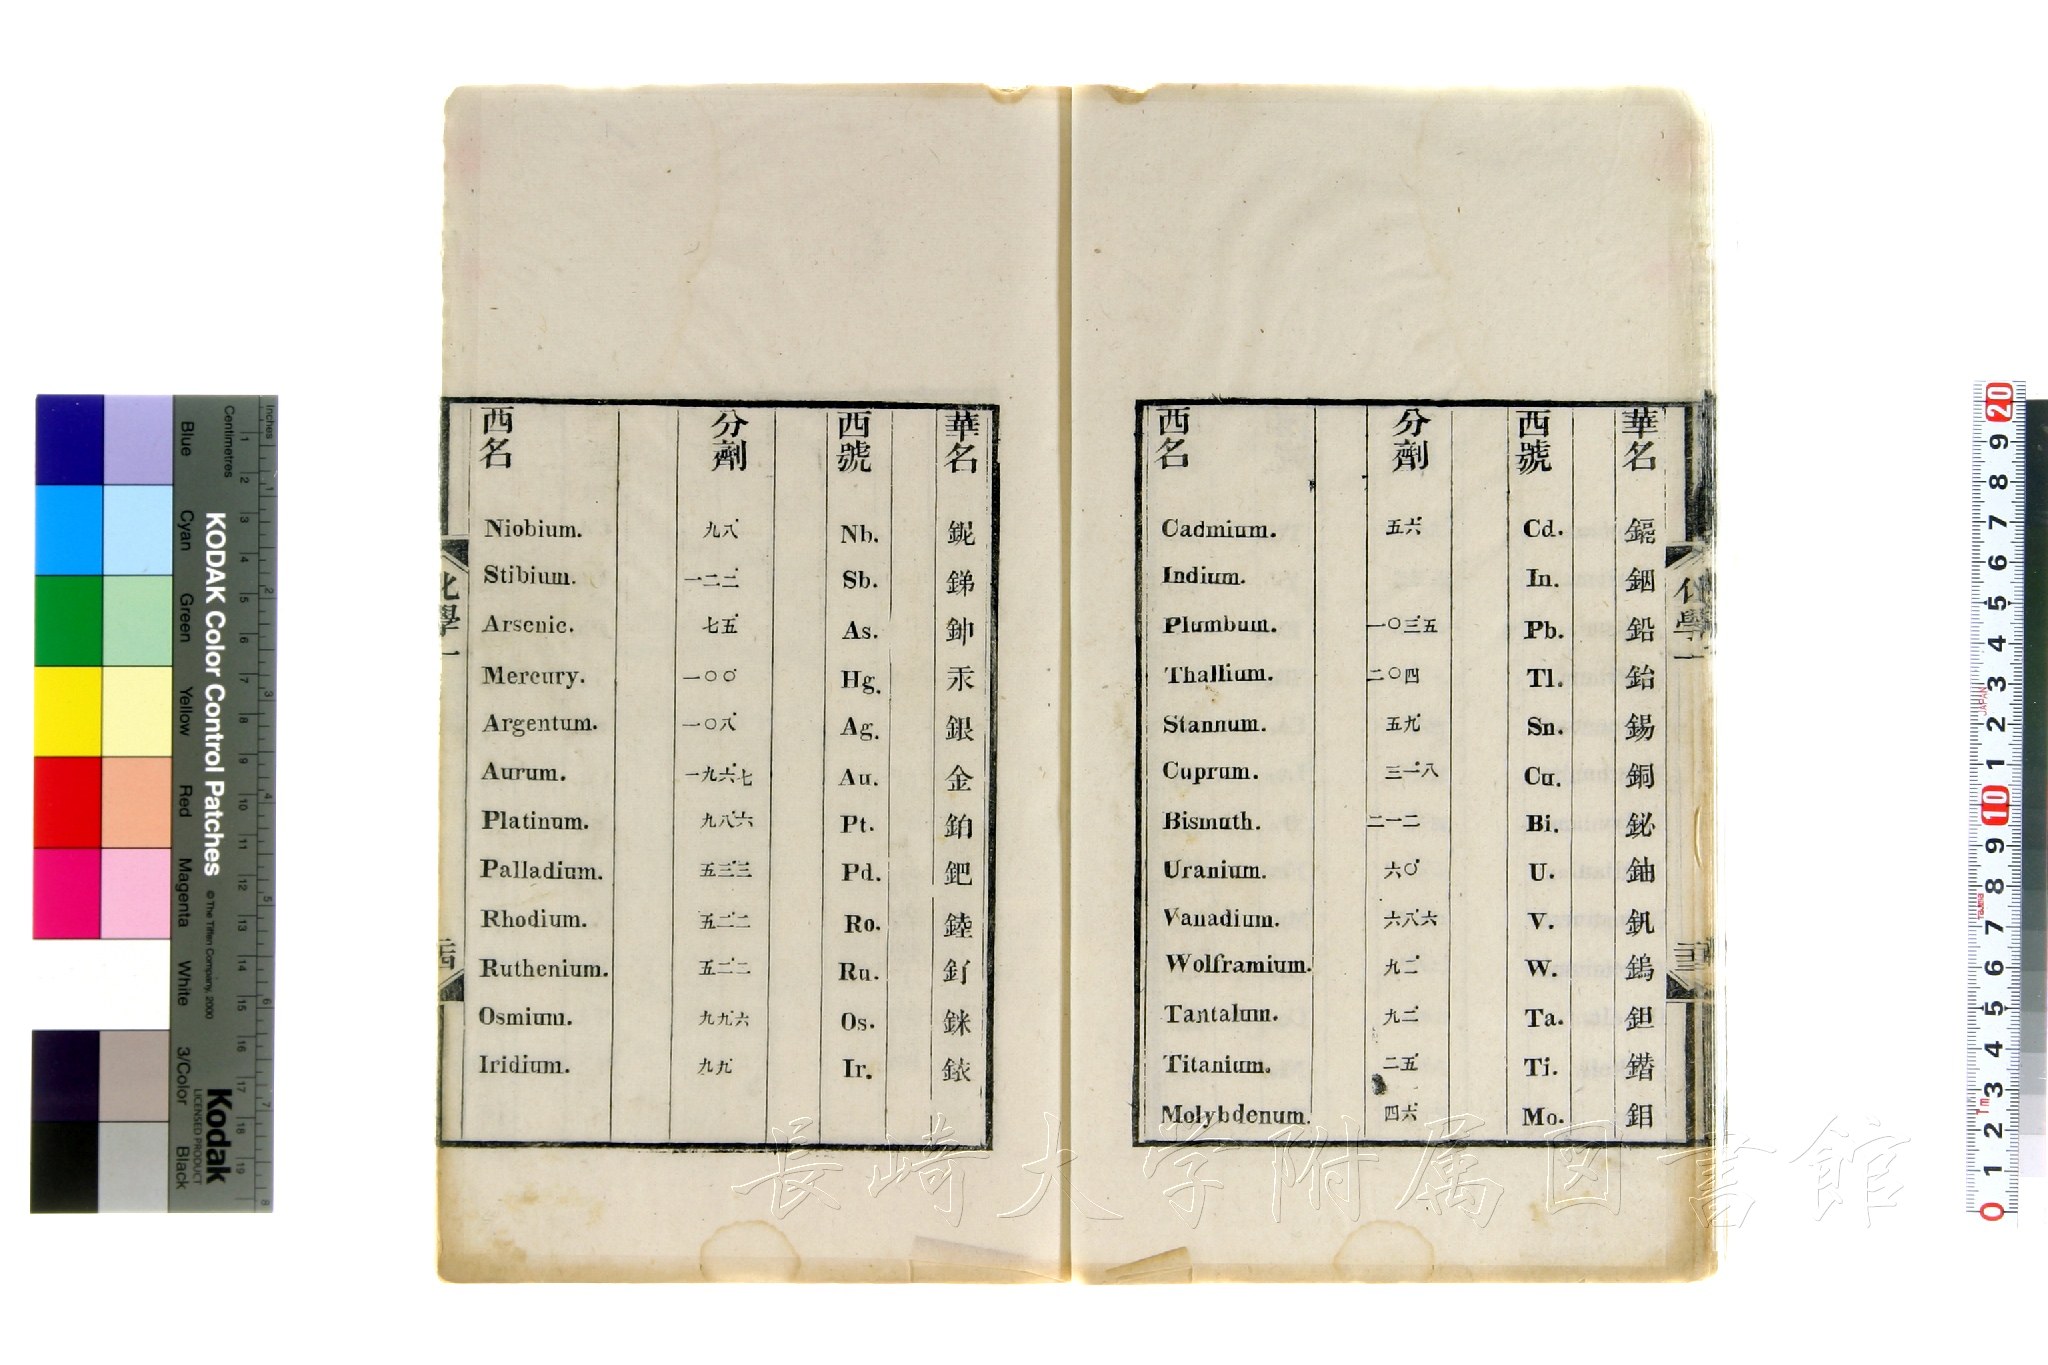 華名 西號 分劑 西名
鎘 Cd. 五六 Cadmium.
銦 In. Indium.
鉛 Pb. 一〇三五 Plumbum.
鉛 Tl. 二〇四 Thallium.
錫 Sn. 五九 Stannum.
銅 Cu. 三一八 Cuprum.
鉍 Bi. 二一二 Bismuth.
鈾 U. 六〇 Uranium.
釩 V. 六八六 Vanadium.
鎢 W. 九二 Wolframium.
鉭 Ta. 九二 Tantalum.
鐟 Ti. 二五 Titanium.
鉬 Mo. 四六 Molybdenum.
化學一
華名 西號 分劑 西名
鈮 Nb. 九八 Niobium.
銻 Sb. 一二二 Stibium.
鉮 As. 七五 Arsenic.
汞 Hg. 一〇〇 Mercury.
銀 Ag. 一〇八 Argentum.
金 Au. 一九六七 Aurum.
鉑 Pt. 九八六 Platinum.
鈀 Pd. 五三三 Palladium.
錴 Ro. 五二二 Rhodium.
釕 Ru. 五二二 Ruthenium.
銤 Os. 九九六 Osmium.
銥 Ir. 九九 Iridium.
化學一
長崎大学附属図書館
KODAK Color Control Patches
© The Tiffen Company, 2000
Kodak
LICENSED PRODUCT
Inches
Centimetres
Blue Cyan Green Yellow Red Magenta White 3/Color Black
JAPAN